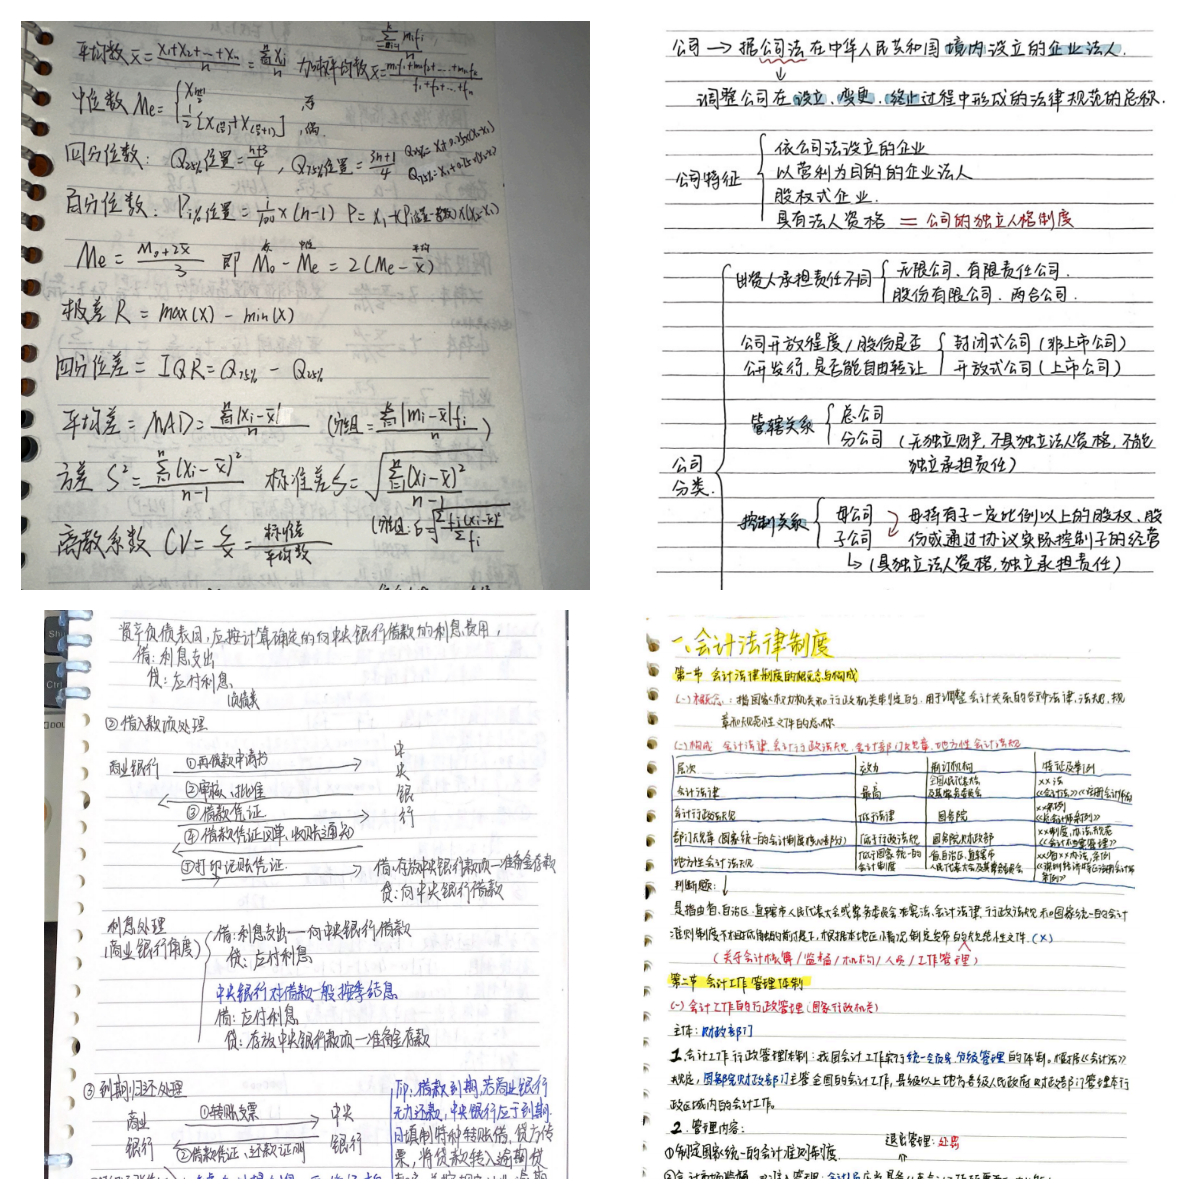 平均数 x̄ = (x₁+x₂+…+xₙ)/n = Σxᵢ/n 加权平均数 x̄ = (m₁f₁+m₂f₂+…+mₖfₖ)/(f₁+f₂+…+fₙ)
中位数 Me =
四分位数: Q25%位置 = (n+3)/4 , Q75%位置 = (3n+1)/4
百分位数: Pi%位置 = i/100 × (n-1)
Me = (M₀+2x̄)/3 即 M₀ - Me = 2(Me - x̄)
极差 R = max(x) - min(x)
四分位差 = IQR = Q75% - Q25%
平均差 = MAD = Σ|xᵢ-x̄|/n (分组 = Σ|mᵢ-x̄|fᵢ/n)
方差 S² = Σ(xᵢ-x̄)²/(n-1) 标准差S = √(Σ(xᵢ-x̄)²/(n-1))
离散系数 CV = S/x̄ = 标准差/平均数
公司 → 据公司法在中华人民共和国境内设立的企业法人.
调整公司在设立、变更、终止过程中形成的法律规范的总称.
公司特征
依公司法设立的企业
以营利为目的的企业法人
股权式企业.
具有法人资格 = 公司的独立人格制度
公司
分类.
出资人承担责任不同
无限公司、有限责任公司.
股份有限公司、两合公司.
公司开放程度/股份是否
公开发行,是否能自由转让
封闭式公司(非上市公司)
开放式公司(上市公司)
管辖关系
总公司
分公司 (无独立财产,不具独立法人资格,不能
独立承担责任)
控制关系
母公司
子公司
母持有子一定比例以上的股权、股
份或通过协议实际控制子的经营
↳ (具独立法人资格,独立承担责任)
资产负债表日,应按计算确定的向中央银行借款的利息费用,
借:利息支出
贷:应付利息
②借入款项处理
商业银行
中央银行
①再借款申请书
②审核、批准
③借款凭证
④借款凭证回单、收账通知
⑤打印记账凭证
借:存放中央银行款项—准备金存款
贷:向中央银行借款
利息处理
(商业银行角度)
借:利息支出—向中央银行借款
贷:应付利息
中央银行对借款一般按季结息
借:应付利息
贷:存放中央银行款项—准备金存款
③到期归还处理
商业
银行
中央
银行
①转账支票
②借款凭证、还款证明
即:借款到期,若商业银行
无力还款,中央银行应于到期
日填制特种转账借、贷方传
票,将贷款转入逾期贷
一、会计法律制度
第一节 会计法律制度的概念与构成
(一)概念:指国家权力机关和行政机关制定的,用于调整会计关系的各种法律,法规,规
章和规范性文件的总称
(二)构成 会计法律,会计行政法规,会计部门规章,地方性会计法规
层次 效力 制订机构 特征及举例
会计法律 最高 全国人民代表大会及其常务委员会 ××法
会计行政法规 低于法律 国务院 ××条例
部门规章(国家统一的会计制度核心部分) 低于行政法规 国务院财政部
地方性会计法规 低于国家统一的会计制度 省,自治区,直辖市人民代表大会及其常务委员会
判断题:
是指由省、自治区、直辖市人民代表大会或常务委员会在宪法,会计法律,行政法规和国家统一的会计
准则制度不相抵触的前提下,根据本地区情况制定发布的规范性文件.(×)
(关于会计核算/监督/机构/人员/工作管理)
第二节 会计工作管理体制
(一)会计工作的行政管理(国家行政机关)
主体:财政部门
1.会计工作行政管理体制:我国会计工作实行统一领导、分级管理的体制。根据《会计法》
规定,国务院财政部门主管全国的会计工作,县级以上地方各级人民政府财政部门管理本行
政区域内的会计工作。
2.管理内容:
①制定国家统一的会计准则制度.